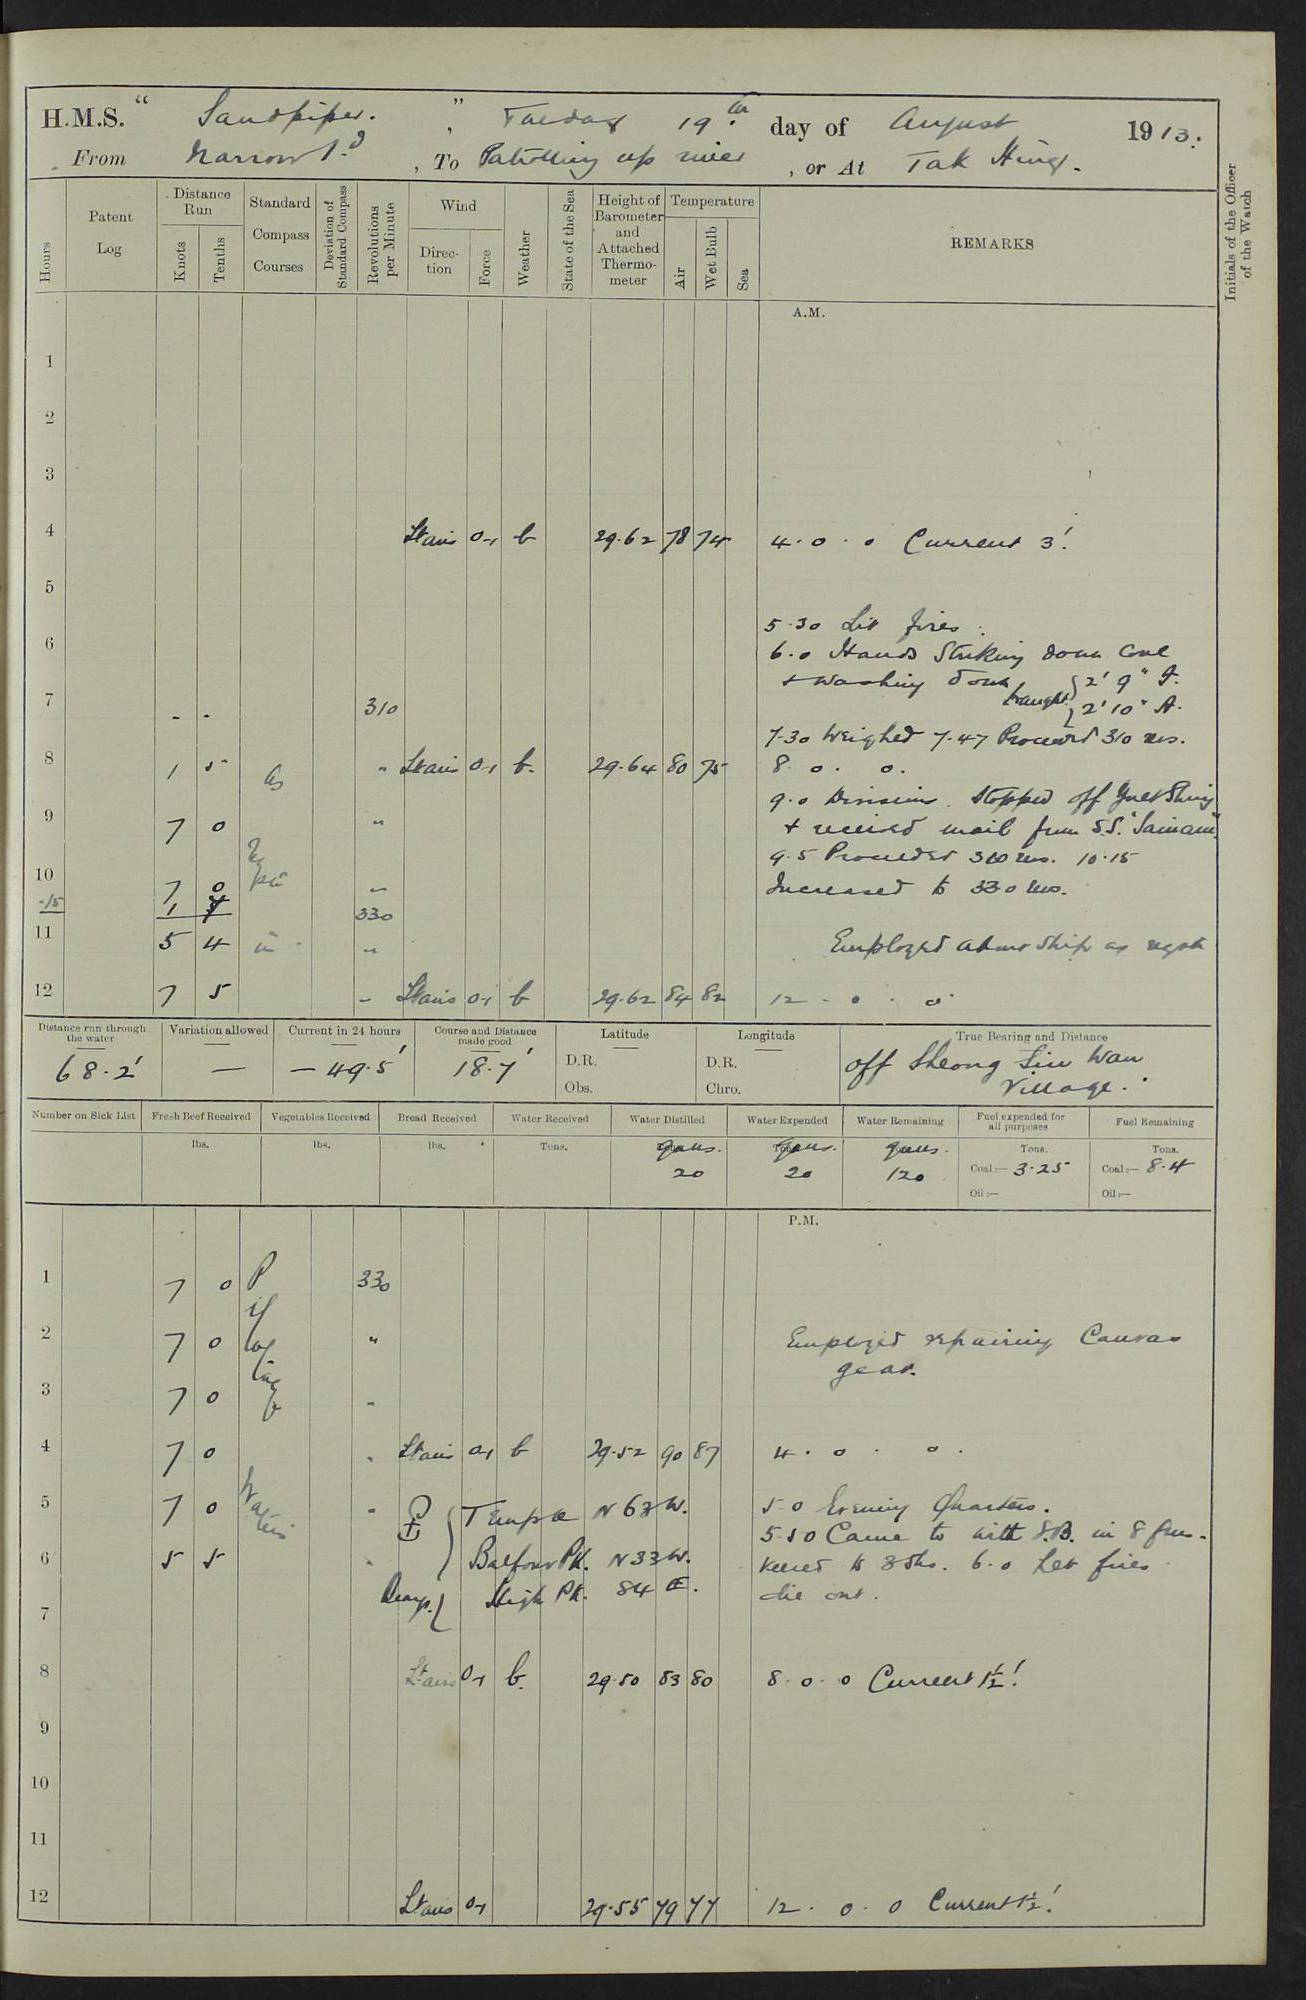 H.M.S. " Sandpiper. ", Tuesday 19th day of August 1913.
From Narrow Pd, To Patrolling up river, or At Tak Hing.
Hours
Patent Log
Distance Run
Knots
Tenths
Standard Compass Courses
Deviation of Standard Compass
Revolutions per Minute
Wind
Direction
Force
Weather
State of the Sea
Height of Barometer and Attached Thermometer
Temperature
Air
Wet Bulb
Sea
REMARKS
Initials of the Officer of the Watch
A.M.
1
2
3
4 Lt airs 0-1 b 29.62 78 74 4.0.0 Current 3'.
5
5.30 Lit fires.
6 6.0 Hands Striking down Coal
+ washing down draught { 2' 9" F.
7 - - 310 2' 10" A.
7.30 Weighed 7.47 Proceeded 310 revs.
8 1 5 as " Lt airs 0-1 b. 29.64 80 75 8.0.0.
9.0 Divisions. Stopped off Yuet Shing
9 7 0 " + received mail from S.S. "Sainam".
9.5 Proceeded 300 revs. 10.15
10 7 0 " Increased to 330 revs.
.15 1 7 330
11 5 4 " Employed about ship as reqte
12 7 5 " Lt airs 0-1 b 29.62 84 82 12.0.0
Distance run through the water
68.2'
Variation allowed
—
Current in 24 hours
- 49.5'
Course and Distance made good
18.7'
Latitude
D.R.
Obs.
Longitude
D.R.
Chro.
True Bearing and Distance
off Sheong Siu Wan
Village.
Number on Sick List
Fresh Beef Received
lbs.
Vegetables Received
lbs.
Bread Received
lbs.
Water Received
Tons.
Water Distilled
galls.
20
Water Expended
galls.
20
Water Remaining
galls.
120
Fuel expended for all purposes
Tons.
Coal:— 3.25
Oil:—
Fuel Remaining
Tons.
Coal:— 8.4
Oil:—
P.M.
1 7 0 Pilotage 330
2 7 0 " Employed repairing Canvas
gear.
3 7 0 "
4 7 0 " Lt airs 0-1 b 29.52 90 87 4.0.0.
5 7 0 Waters " { Temple N 63 W. 5.0 Evening Quarters.
5.50 Came to with S.B. in 8 fms.
6 5 5 " Balfour Pk. N 33 W. veered to 3 shs. 6.0 Let fires
Beargs. { High Pk. 84 E. die out.
7
8 Lt airs 0-1 b. 29.50 83 80 8.0.0 Current 1½'.
9
10
11
12 Lt airs 0-1 29.55 79 77 12.0.0 Current 1½'.